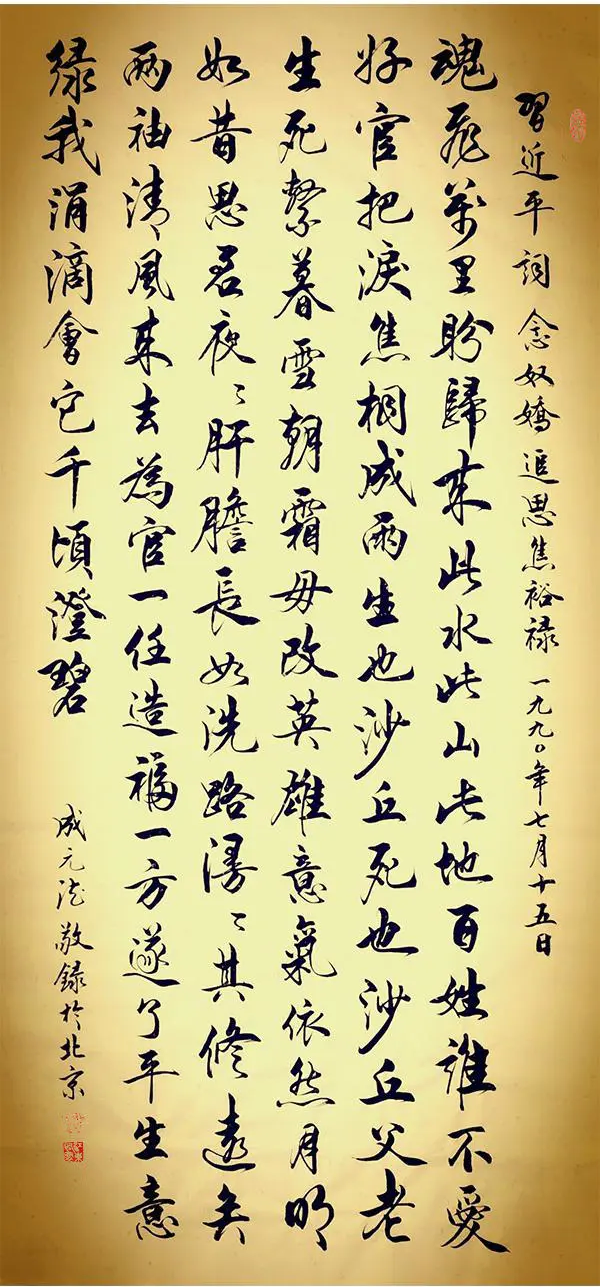 習近平詞 念奴嬌 追思焦裕禄 一九九〇年七月十五日
魂飛萬里盼歸來此水此山此地百姓誰不愛
好官把淚焦桐成雨生也沙丘死也沙丘父老
生死繫暮雪朝霜毋改英雄意氣依然月明
如昔思君夜〻肝膽長如洗路漫〻其修遠矣
兩袖清風來去為官一任造福一方遂了平生意
緑我涓滴會它千頃澄碧
成元法敬録於北京